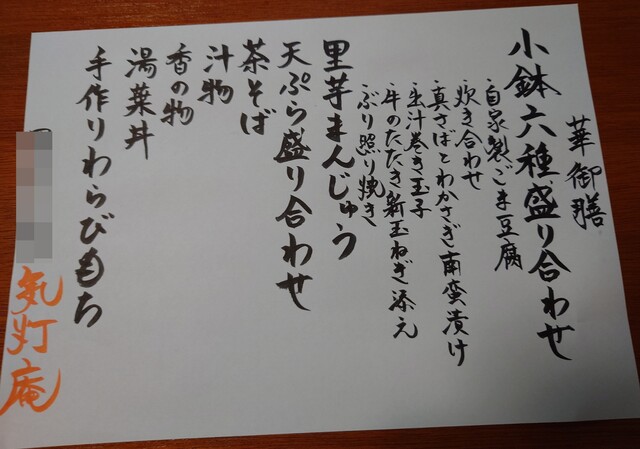 華御膳
小鉢六種盛り合わせ
・自家製ごま豆腐
・炊き合わせ
・真さばとわかさぎ南蛮漬け
・出汁巻き玉子
・牛のたたき新玉ねぎ添え
・ぶり照り焼き
里芋まんじゅう
天ぷら盛り合わせ
茶そば
汁物
香の物
湯葉丼
手作りわらびもち
気灯庵